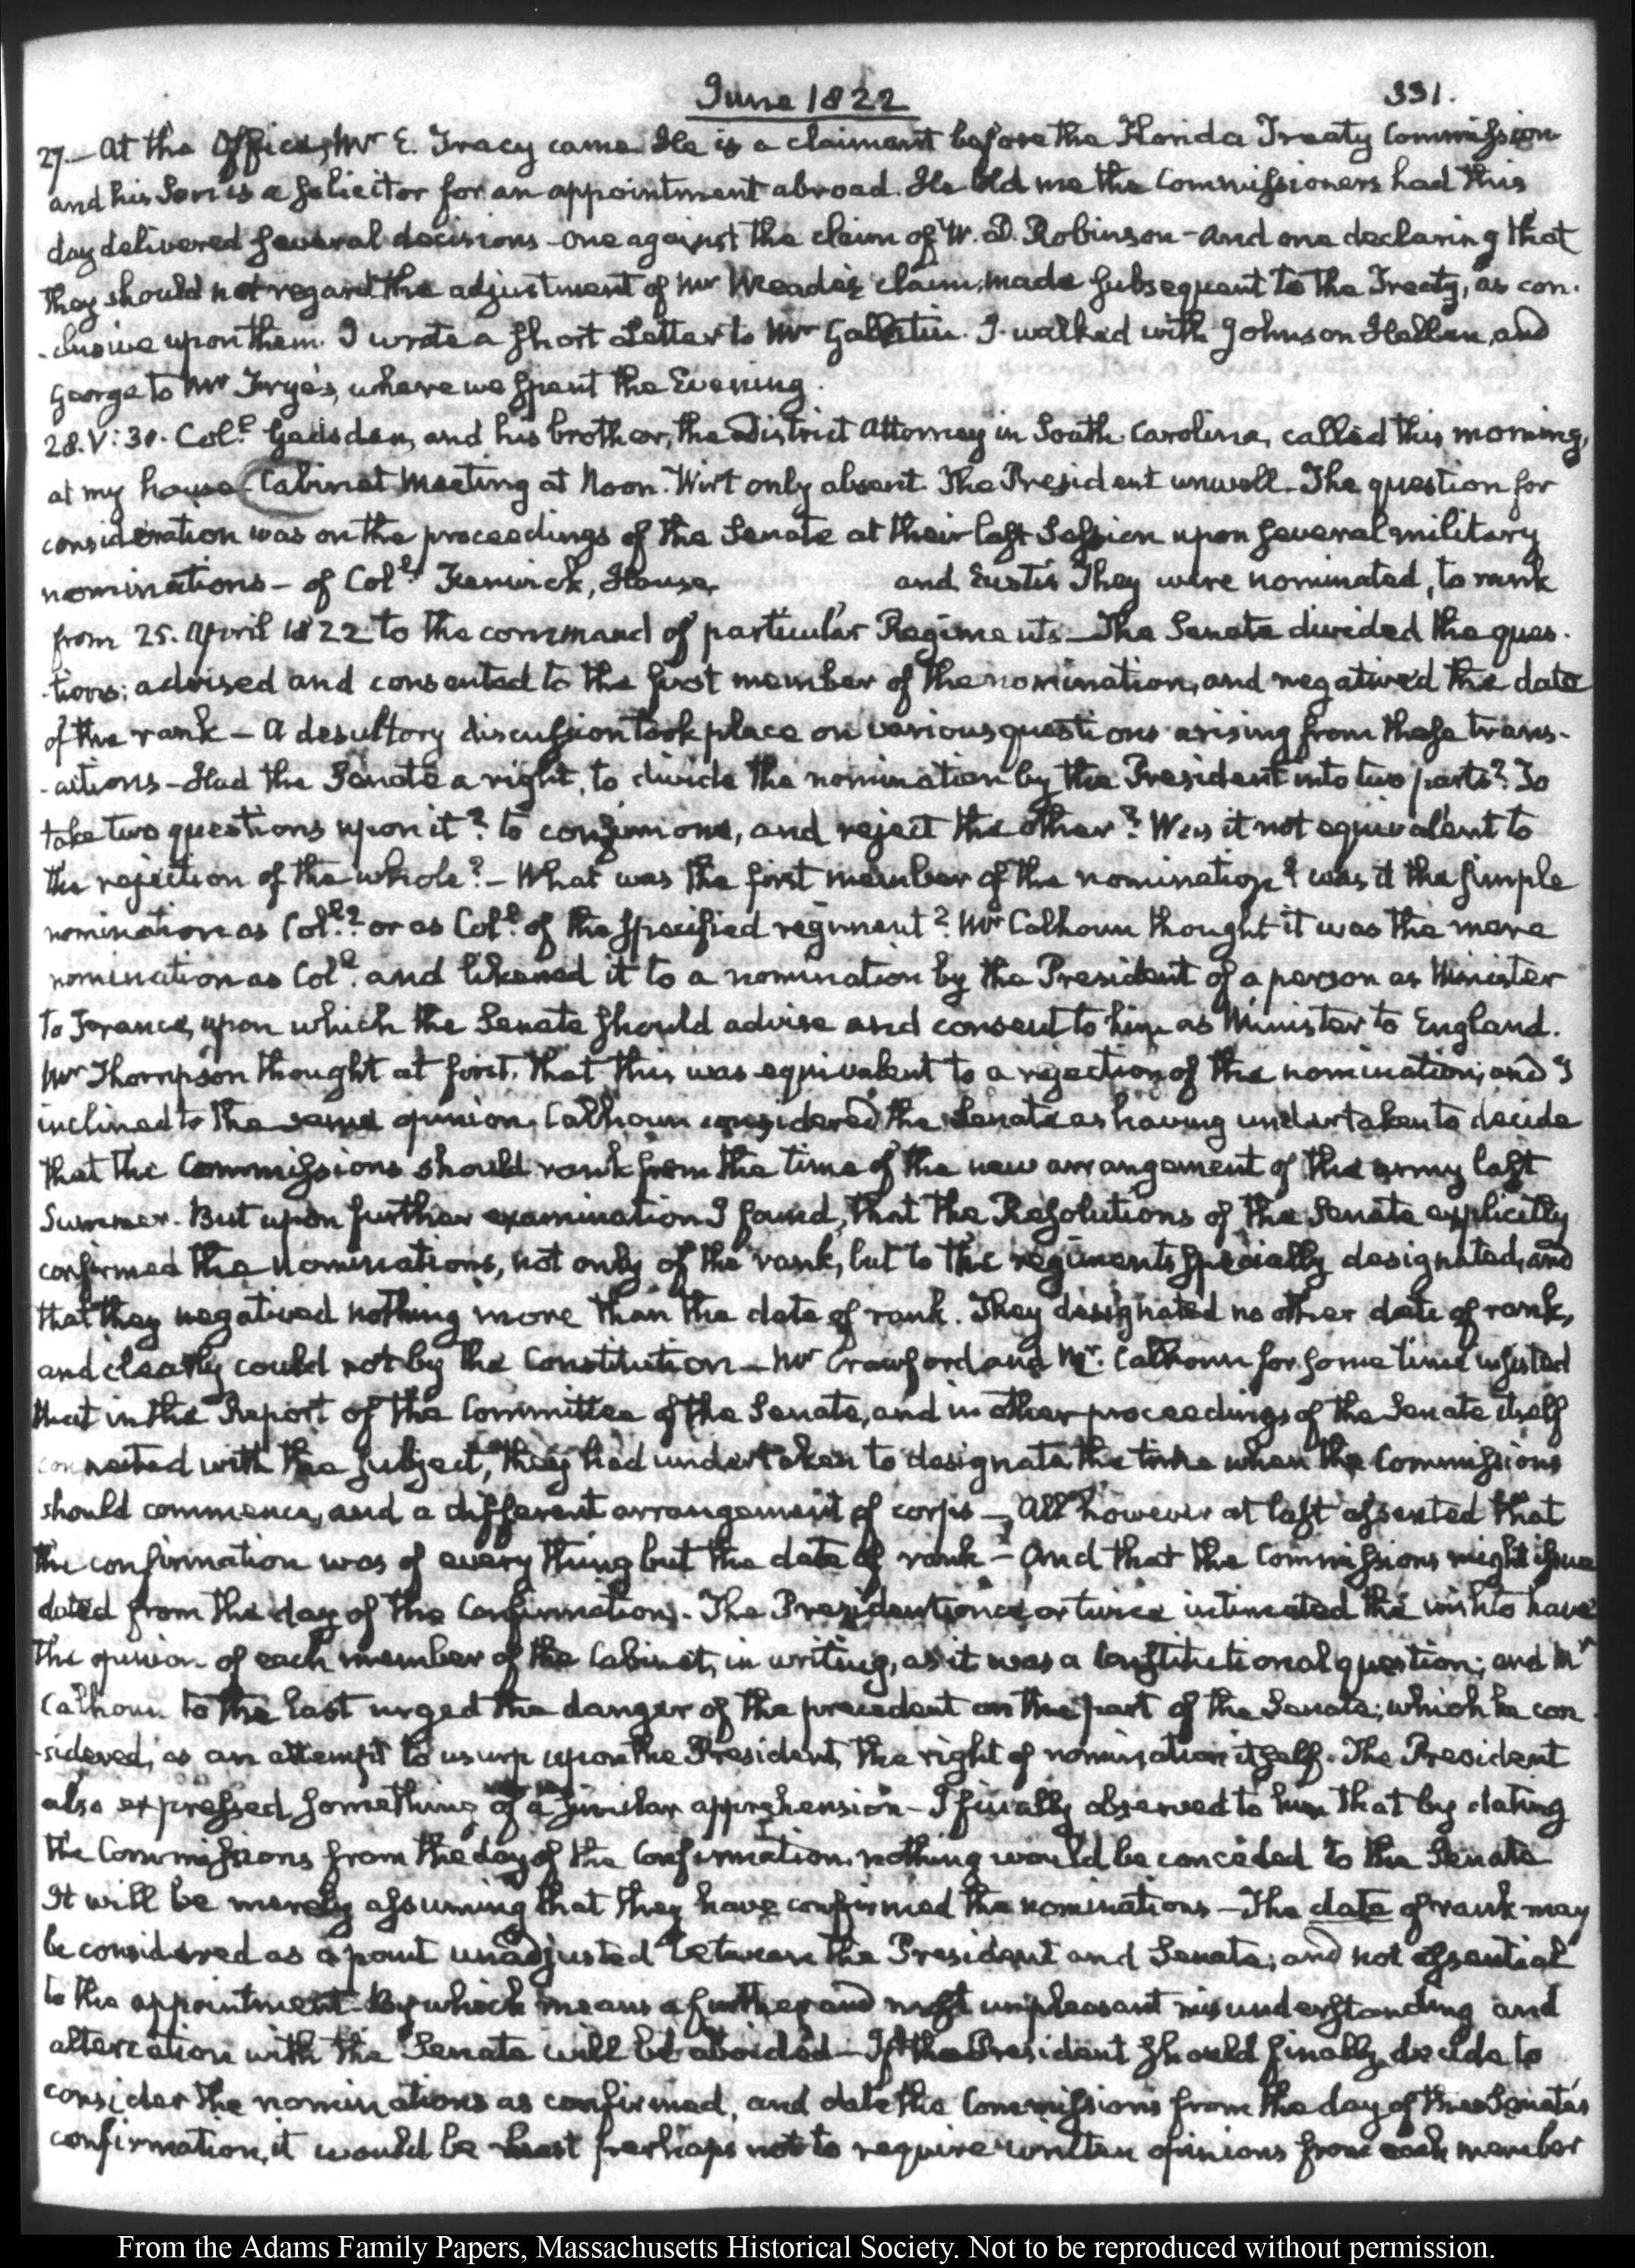 June 1822
331.
27.— At the Office, Mr E. Tracy came. He is a claimant before the Florida Treaty Commission
and his Son is a Solicitor for an appointment abroad. He told me the Commissioners had this
day delivered several decisions – one against the claim of W. D. Robinson – and one declaring that
they should not regard the adjustment of Mr Meade's claim, made subsequent to the Treaty, as con-
-clusive upon them. I wrote a short Letter to Mr Gallatin. I walked with Johnson Hellen, and
George to Mr Frye's, where we spent the Evening.
28. V: 30. Coll. Gadsden, and his brother, the District Attorney in South Carolina, called this morning,
at my house. Cabinet Meeting at Noon. Wirt only absent. The President unwell. The question for
consideration was on the proceedings of the Senate at their last Session upon several military
nominations – of Coll. Fenwick, House, and Eustis They were nominated, to rank
from 25. April 1822 to the command of particular Regiments — The Senate divided the ques-
-tions; advised and consented to the first member of the nomination, and negatived the date
of the rank – A desultory discussion took place on various questions arising from these trans-
-actions – Had the Senate a right, to divide the nomination by the President into two parts? To
take two questions upon it? to confirm one, and reject the other? Was it not equivalent to
the rejection of the whole? – What was the first member of the nomination? was it the simple
nomination as Coll.? or as Coll. of the specified regiment? Mr Calhoun thought it was the mere
nomination as Coll. and likened it to a nomination by the President of a person as Minister
to France, upon which the Senate should advise and consent to him as Minister to England.
Mr Thompson thought at first, that this was equivalent to a rejection of the nomination; and I
inclined to the same opinion. Calhoun considered the Senate as having undertaken to decide
that the Commissions should rank from the time of the new arrangement of the army last
Summer. But upon further examination I found, that the Resolutions of the Senate explicitly
confirmed the nominations, not only of the rank, but to the regiments specially designated, and
that they negatived nothing more than the date of rank. They designated no other date of rank,
and clearly could not by the Constitution — Mr Crawford and Mr. Calhoun for some time insisted
that in the Report of the Committee of the Senate, and in other proceedings of the Senate itself
connected with the subject, they had undertaken to designate the time when the Commissions
should commence, and a different arrangement of corps — All however at last assented that
the confirmation was of every thing but the date of rank – and that the Commissions might issue
dated from the day of the Confirmation. The President once or twice intimated the wish to have
the opinion of each member of the Cabinet, in writing, as it was a Constitutional question; and Mr
Calhoun to the last urged the danger of the precedent on the part of the Senate; which he con-
-sidered, as an attempt to usurp upon the President, the right of nomination itself. The President
also expressed something of a similar apprehension – I finally observed to him that by dating
the Commissions from the day of the Confirmation, nothing would be conceded to the Senate
It will be merely assuming that they have confirmed the nominations – The date of rank may
be considered as a point unadjusted between the President and Senate; and not essential
to the appointment. By which means a further and most unpleasant misunderstanding and
altercation with the Senate will be avoided — If the President should finally decide to
consider the nominations as confirmed, and date the Commissions from the day of the Senate's
confirmation, it would be best perhaps not to require written opinions from each member
From the Adams Family Papers, Massachusetts Historical Society. Not to be reproduced without permission.